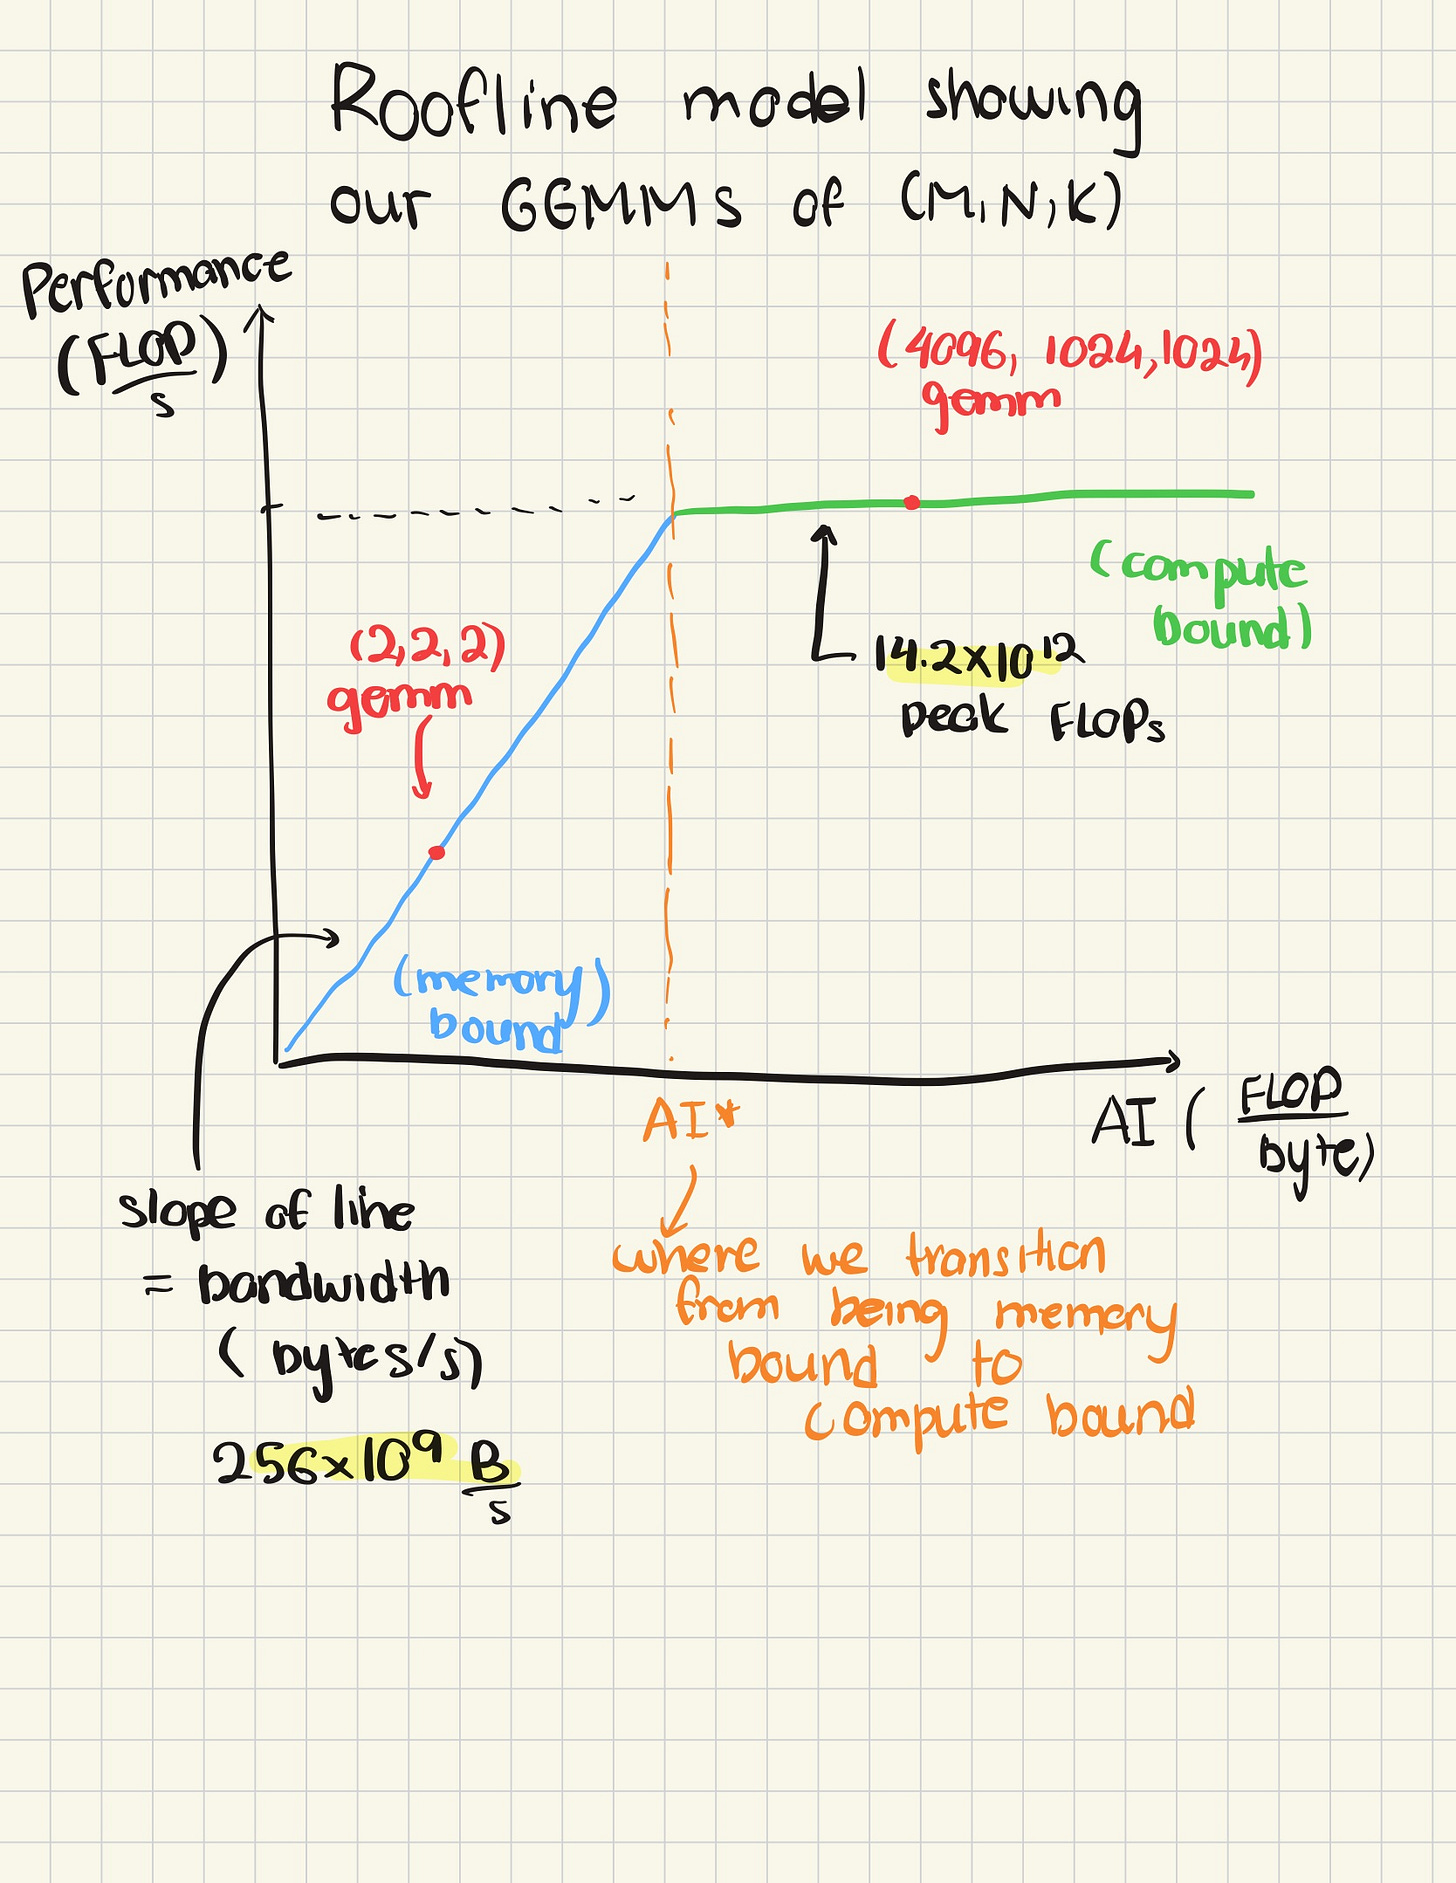 Roofline model showing
our GEMMs of (M,N,K)
Performance
(FLOP/s)
(4096, 1024, 1024)
gemm
(compute
bound)
(2,2,2)
gemm
14.2×10¹²
peak FLOPs
(memory)
bound
AI*
AI (FLOP/byte)
slope of line
= bandwidth
(bytes/s)
256×10⁹ B/s
where we transition
from being memory
bound to
compute bound